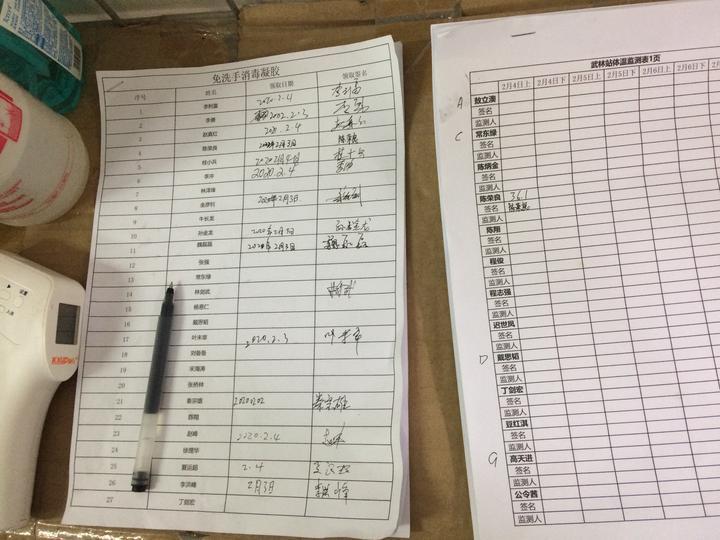 免洗手消毒凝胶
序号 姓名 领取日期 领取签名
1 李利富 2020.2.4
2 李勇 2002.2.3
3 赵真红 2.4
4 陈荣良 2020年2月3日 陈荣良
5 桂小兵 2020 2月4日
6 李冲 2020.2.4
7 林泽锋
8 金彦钊 2020年2月3日
9 牛长龙
10 孙金龙 2020年2月3日 孙金龙
11 魏磊磊 2020年2月3日 魏磊磊
12 张强
13 常东绿
14 林剑武
15 杨恩仁
16 戴思韬
17 叶末章 2020.2.3
18 刘备备
19 宋海涛
20 张桥林
21 秦宗雄 20200202 秦宗雄
22 陈翔
23 赵峰 2020.2.4
24 徐理华
25 夏运超 2.4 夏运超
26 李洪峰 2月3日 李洪峰
27 丁剑宏
KXiDen
武林站体温监测表1页
2月4日上 2月4日下 2月5日上 2月5日下 2月6日上 2月6日下
A 敖立澳
签名
监测人
C 常东绿
签名
监测人
陈炳金
签名
监测人
陈荣良 36.1
签名 陈荣良
监测人
陈翔
签名
监测人
程俊
签名
监测人
程志强
签名
监测人
迟世凤
签名
监测人
D 戴思韬
签名
监测人
丁剑宏
签名
监测人
亚红淇
签名
监测人
G 高天进
签名
监测人
公令茜
签名
监测人